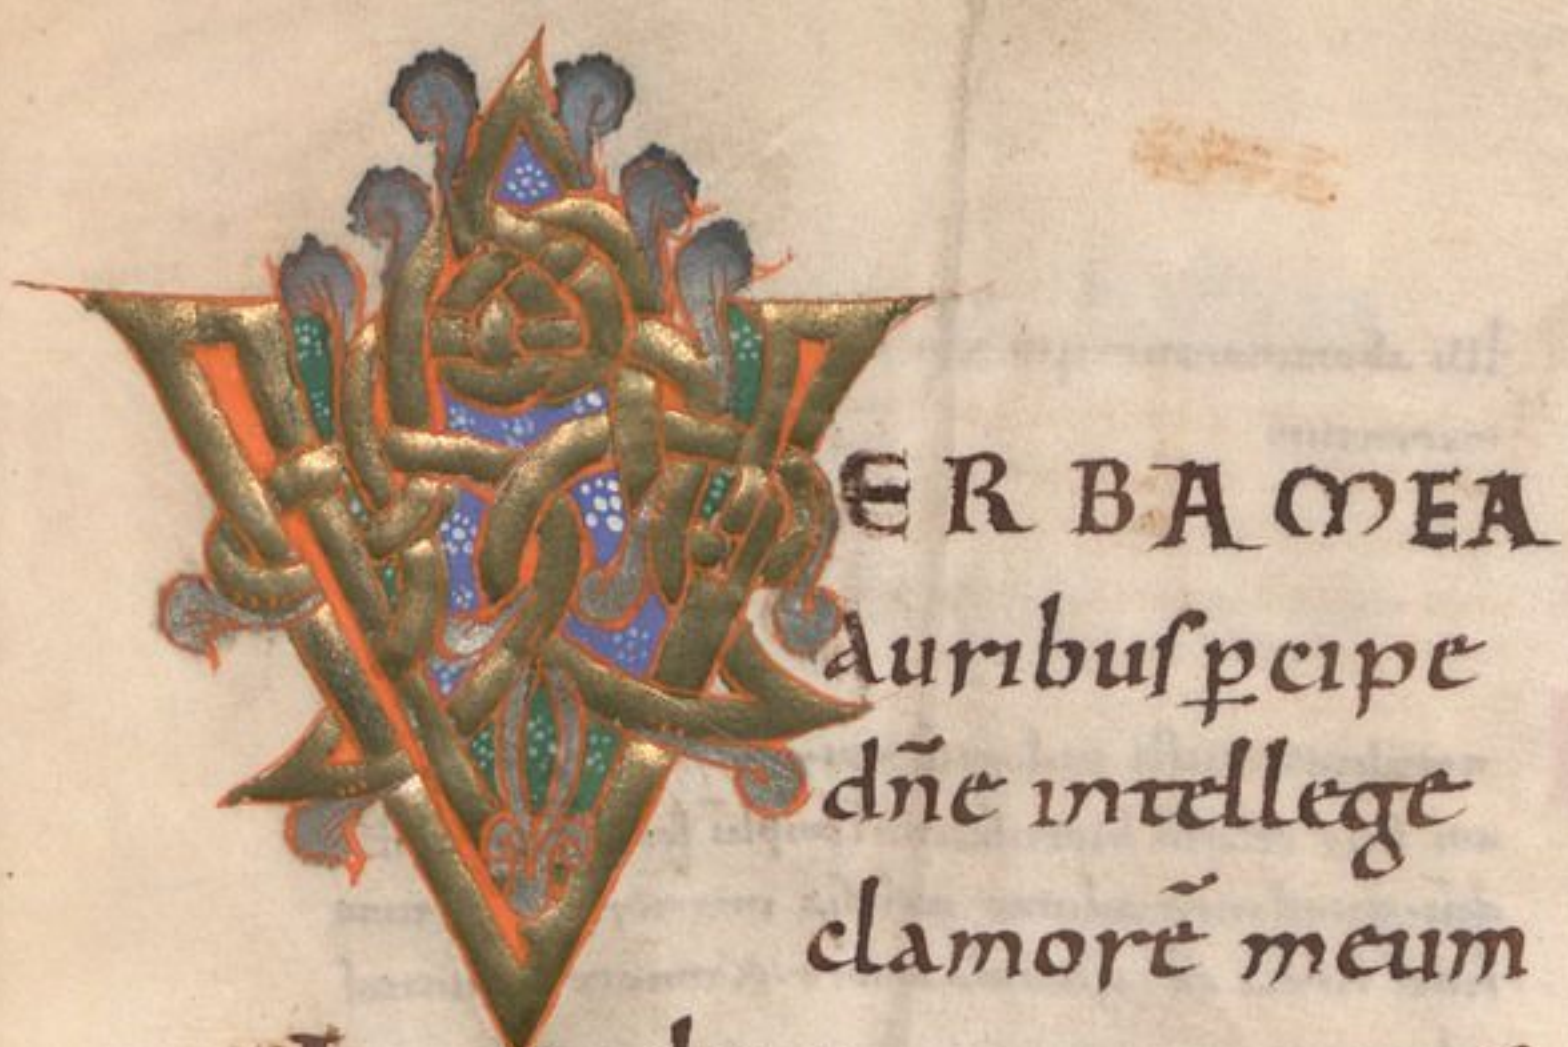 VERBA MEA
auribus ꝑcipe
dñe intellege
clamorẽ meum